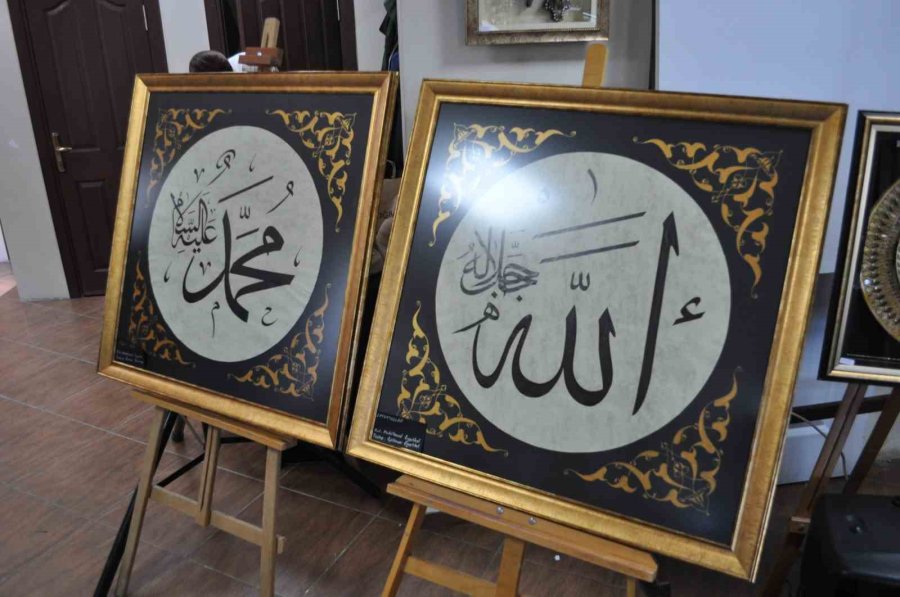 محمد
عليه السلام
الله
جل جلاله